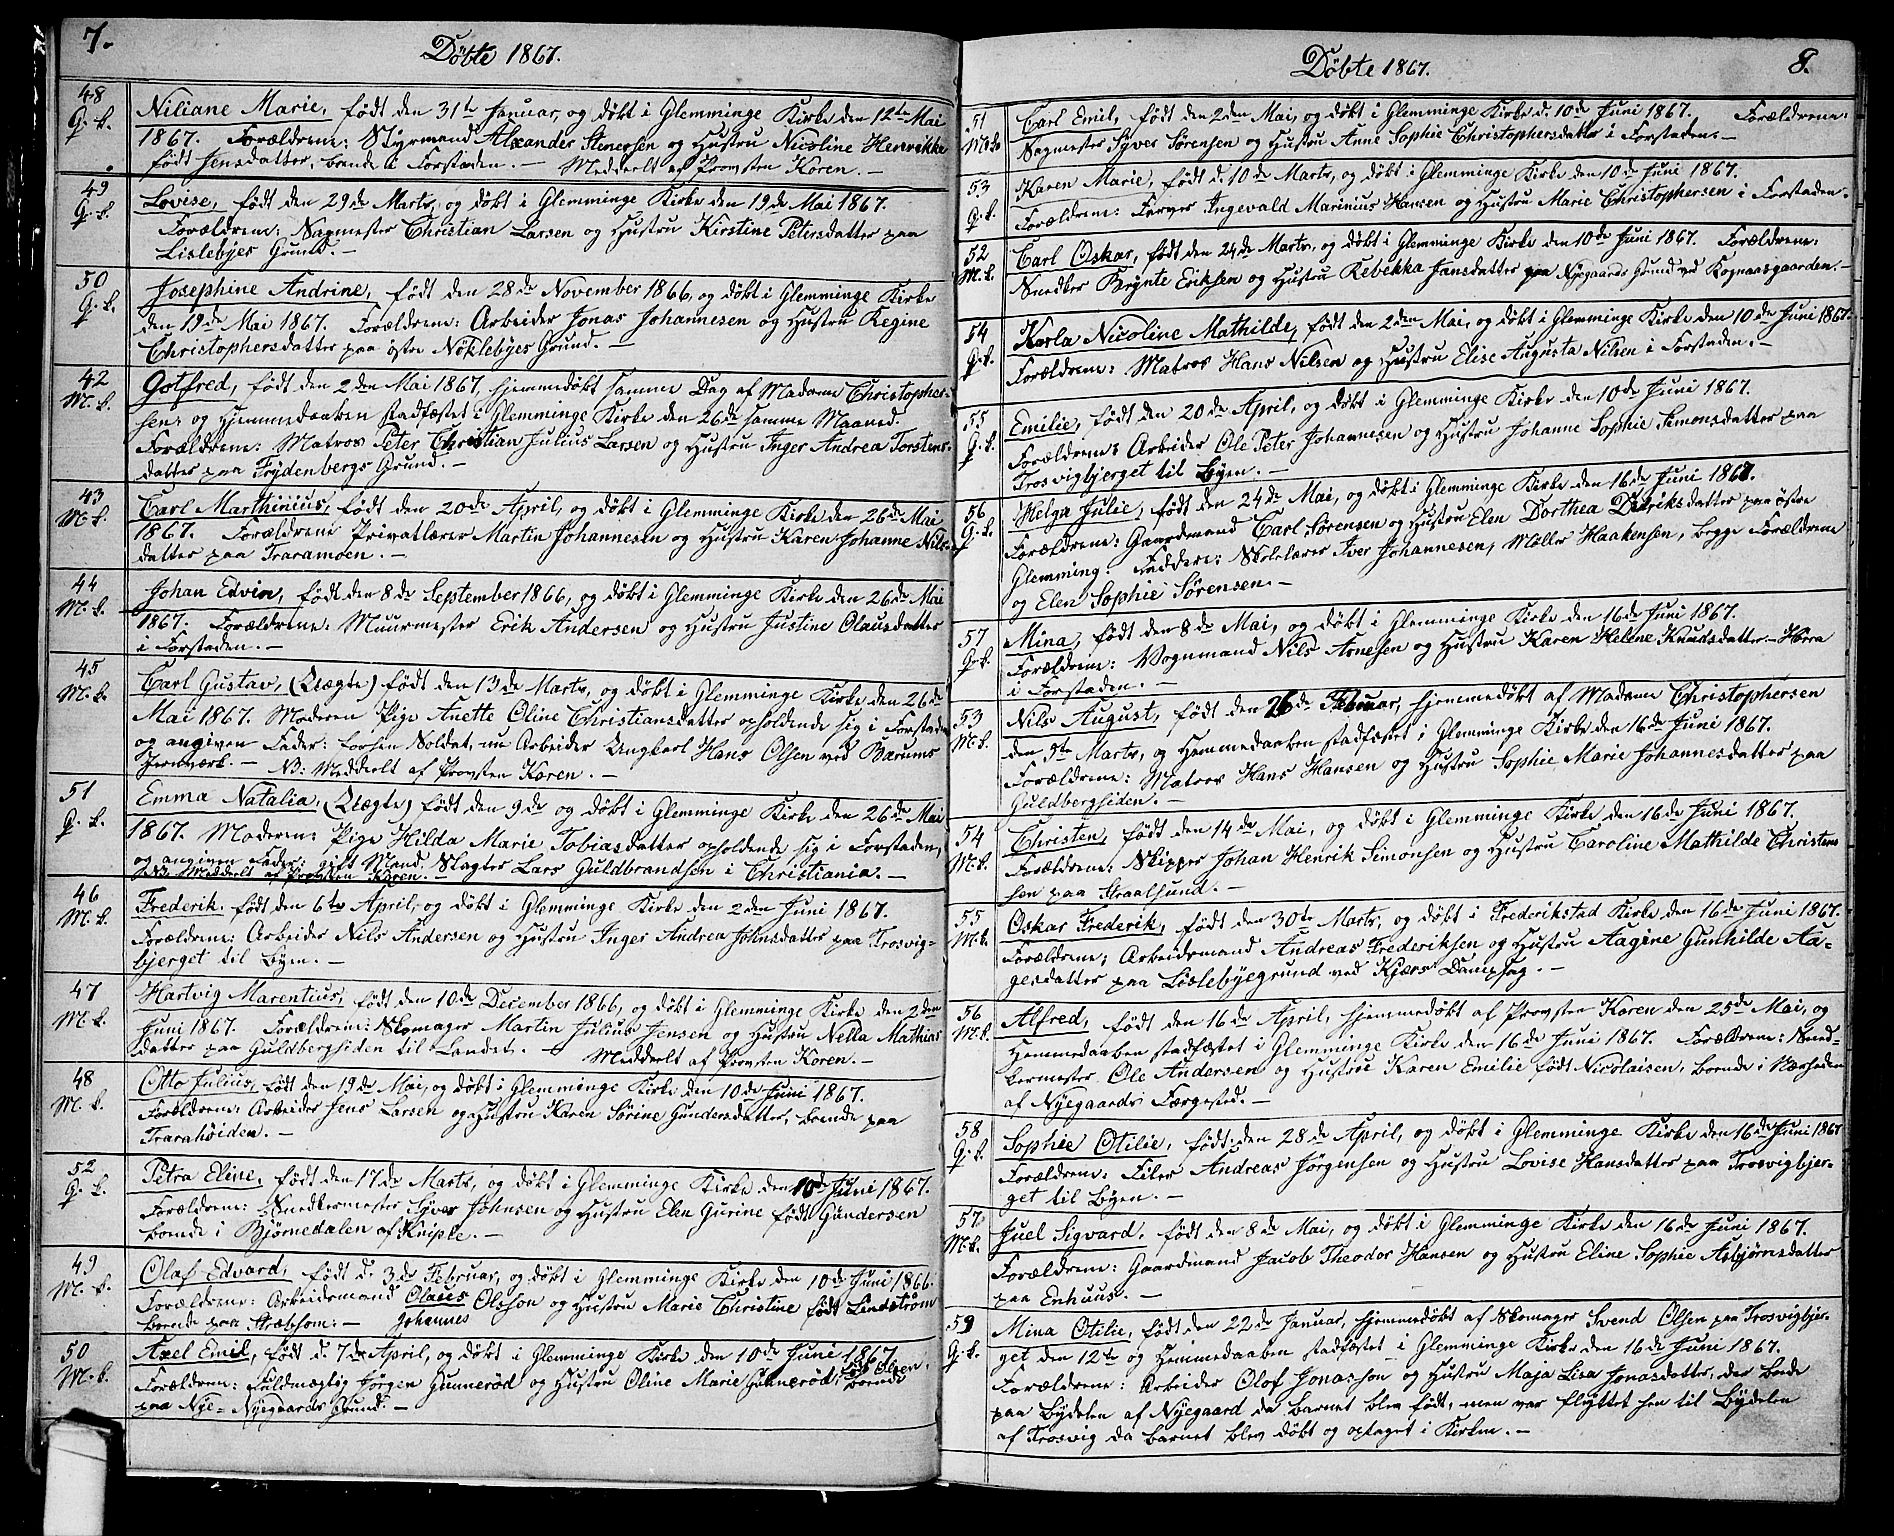 7.
Döbte 1867.
48
G. k.
Niliane Marie, födt den 31te Januar, og döbt i Glemminge Kirke den 12te Mai
1867. Forældrene: Styrmand Alexander Stenersen og Hustru Nicoline Henrikke
födt Jensdatter, boende i Forstaden. — Medderlt af Provsten Koren. —
49
G. k.
Lovise, födt den 29de Marts, og döbt i Glemminge Kirke den 19de Mai 1867.
Forældrene: Sagmester Christian Larsen og Hustru Kirstine Petersdatter paa
Lislebyes Grund. —
50
G. k.
Josephine Andrine, födt den 28de November 1866, og döbt i Glemminge Kirke
den 19de Mai 1867. Forældrene: Arbeider Jonas Johannesen og Hustru Regine
Christophersdatter paa östre Nöklebyes Grund. —
42
M. k.
Gotfred, födt den 2den Mai 1867, hjemmedöbt samme Dag af Madame Christopher-
sen, og Hjemmedaaben stadfæstet i Glemminge Kirke den 26de samme Maaned.
Forældrene: Matros Peter Christian Julius Larsen og Hustru Inger Andrea Torstens-
datter paa Frydenbergs Grund. —
43
M. k.
Carl Marthinius, födt den 20de April, og döbt i Glemminge Kirke den 26de Mai
1867. Forældrene Privatlærer Martin Johannesen og Hustru Karen Johanne Nils-
datter paa Traramoen. —
44
M. k.
Johan Edvin, födt den 8de September 1866, og döbt i Glemminge Kirke den 26de Mai
1867. Forældrene: Muurmester Erik Andersen og Hustru Justine Olausdatter
i Forstaden. —
45
M. k.
Carl Gustav, (Uægte) födt den 13de Marts, og döbt i Glemminge Kirke den 26de
Mai 1867. Moderen Pige Anette Oline Christiansdatter opholdende sig i Forstaden
og angiven Fader: Soldat, nu Arbeider Ungkarl Hans Olsen ved Bærums
Jernværk. — NB: Medderlt af Provsten Koren. —
51
G. k.
Emma Natalia, (Uægte) födt den 9de og döbt i Glemminge Kirke den 26de Mai
1867. Moderen: Pige Hilda Marie Tobiasdatter opholdende sig i Forstaden,
og angiven Fader: gift Mand Slagter Lars Guldbrandsen i Christiania. —
NB. Medderlt af Provsten Koren. —
46
M. k.
Frederik, födt den 6te April, og döbt i Glemminge Kirke den 2den Juni 1867.
Forældrene: Arbeider Nils Andersen og Hustru Inger Andrea Johnsdatter paa Trosvig-
bjerget til Byen. —
47
M. k.
Hartvig Marentius, födt den 10de December 1866, og döbt i Glemminge Kirke den 2den
Juni 1867. Forældrene: Skomager Martin Julius Jensen og Hustru Nella Mathias
datter paa Guldbergsiden til Landet. — Medderlt af Provsten Koren. —
48
M. k.
Otto Julius, födt den 19de Mai, og döbt i Glemminge Kirke den 10de Juni 1867.
Forældrene: Arbeider Jens Larsen og Hustru Karen Sörine Gundersdatter, boende paa
Trarahöiden. —
52
G. k.
Petra Eline, födt den 17de Marts, og döbt i Glemminge Kirke den 10de Juni 1867.
Forældrene: Snedkermester Syver Johnsen og Hustru Elen Gurine födt Gundersen
boende i Björnedalen af Kniple. —
49
M. k.
Olaf Edvard, födt d. 3de Februar, og döbt i Glemminge Kirke den 10de Juni 1866.
Forældrene: Arbeidsmand Olaus Olsson og Hustru Marie Christine födt Lindström
boende paa Strætsom: — Johannes
50
M. k.
Axel Emil, födt d. 7de April, og döbt i Glemminge Kirke den 10de Juni 1867.
Forældrene: Fuldmægtig Jörgen Gunneröd og Hustru Oline Marie Gunneröd, födt Olsen, boende
paa Nye- Nyegaards Grund. —
8.
Döbte 1867.
51
M. k
Carl Emil, födt den 2den Mai, og döbt i Glemminge Kirke d. 10de Juni 1867. Forældrene:
Sagmester Syver Sörensen og Hustru Anne Sophie Christophersdatter i Forstaden. —
53
G. k.
Karen Marie, födt d. 10de Marts, og döbt i Glemminge Kirke den 10de Juni 1867.
Forældrene: Farver Ingevald Marinius Hansen og Hustru Marie Christophersen i Forstaden. —
52
M. k.
Carl Oskar, födt den 24de Marts, og döbt i Glemminge Kirke den 10de Juni 1867. Forældrene:
Snedker Brynte Eriksen og Hustru Rebekka Jansdatter paa Nyegaards Grund ved Kognaasgaarden. —
54
G. k.
Karla Nicoline Mathilde, födt den 2den Mai, og döbt i Glemminge Kirke den 10de Juni 1867.
Forældrene: Matros Hans Nilsen og Hustru Elise Augusta Nilsen i Forstaden. —
55
G. k.
Emilie, födt den 20de April, og döbt i Glemminge Kirke den 10de Juni 1867.
Forældrene: Arbeider Ole Peter Johannesen og Hustru Johanne Sophie Simonsdatter paa
Trosvigbjerget til Byen. —
56
G. k.
Helga Julie, födt den 24de Mai, og döbt i Glemminge Kirke den 16de Juni 1867.
Forældrene: Gaardmand Carl Sörensen og Hustru Elen Dorthea Didriksdatter paa östre
Glemming. Faddere: Skolelærer Iver Johannesen, Möller Haakensen, begge Forældrene
og Elen Sophie Sörensen. —
57
G. k.
Mina, födt den 8de Mai, og döbt i Glemminge Kirke den 16de Juni 1867.
Forældrene: Vognmand Nils Arnesen og Hustru Karen Helene Knudsdatter-Hvra
i Forstaden. —
53
M. k.
Nils August, födt den 26de Februar, hjemmedöbt af Madame Christophersen
den 9te Marts, og Hjemmedaaben stadfæstet i Glemminge Kirke den 16de Juni 1867.
Forældrene: Matros Hans Hansen og Hustru Sophie Marie Johannesdatter paa
Guldbergsiden. —
54
M. k.
Christen, födt den 14de Mai, og döbt i Glemminge Kirke den 16de Juni 1867.
Forældrene: Skipper Johan Henrik Simonsen og Hustru Caroline Mathilde Christen
sen paa Straalsund. —
55
M. k
Oskar Frederik, födt den 30te Marts, og döbt i Frederikstad Kirke den 16de Juni 1867.
Forældrene; Arbeidsmand Andreas Frederiksen og Hustru Aagine Gunhilde Aa-
gesdatter paa Lislebyegrund ved Kjærs Dampsag. —
56
M. k.
Alfred, födt den 16de April, hjemmedöbt af Provsten Koren den 25de Mai, og
Hemmedaaben stadfæstet i Glemminge Kirke den 16de Juni 1867. Forældrene: Sned-
kermester Ole Andersen og Hustru Karen Emilie födt Nicolaisen, boende i Nærheden
af Nyegaards Færgested. —
58
G. k.
Sophie Otilie, födt den 28de April, og döbt i Glemminge Kirke den 16de Juni 1867
Forældrene: Filer Andreas Jörgensen og Hustru Lovise Hansdatter paa Trosvigbjer-
get til Byen. —
57
M. k.
Juel Sigvard, födt den 8de Mai, og döbt i Glemminge Kirke den 16de Juni 1867.
Forældrene: Gaardmand Jacob Theodor Hansen og Hustru Eline Sophie Asbjörnsdatter
paa Enhuus. —
59
G. k.
Mina Otilie, födt den 22de Januar, hjemmedöbt af Skomager Svend Olsen paa Trosvigbjer-
get den 12te og Hemmedaaben stadfæstet i Glemminge Kirke den 16de Juni 1867.
Forældrene: Arbeider Olof Jonasson og Hustru Maja Lisa Jonasdatter, der boede
paa Bydelen af Nyegaard da barnet blev födt, men var flyttet hen til Bydelen
af Trosvig da barnet blev döbt og optaget i Kirken. —